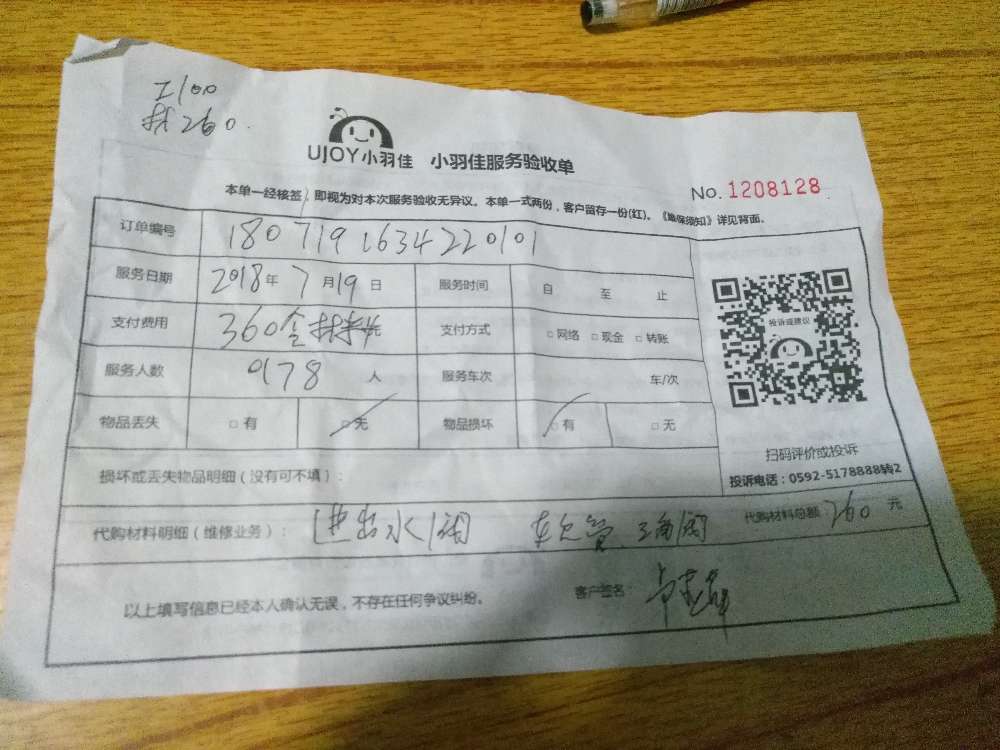 工100
材260.
UJOY小羽佳 小羽佳服务验收单
No. 1208128
本单一经核签，即视为对本次服务验收无异议。本单一式两份，客户留存一份(红)。《维保须知》详见背面。
订单编号 1807191634220101
服务日期 2018年7月19日 服务时间 自 至 止
支付费用 360含材料 元 支付方式 □网络 □现金 □转账
投诉或建议
服务人数 9178 人 服务车次 车/次
物品丢失 □有 □无 物品损坏 □有 □无
扫码评价或投诉
投诉电话：0592-5178888转2
损坏或丢失物品明细（没有可不填）：
代购材料明细（维修业务）： 进出水阀 软管 三角阀 代购材料总额：260 元
以上填写信息已经本人确认无误，不存在任何争议纠纷。 客户签名：